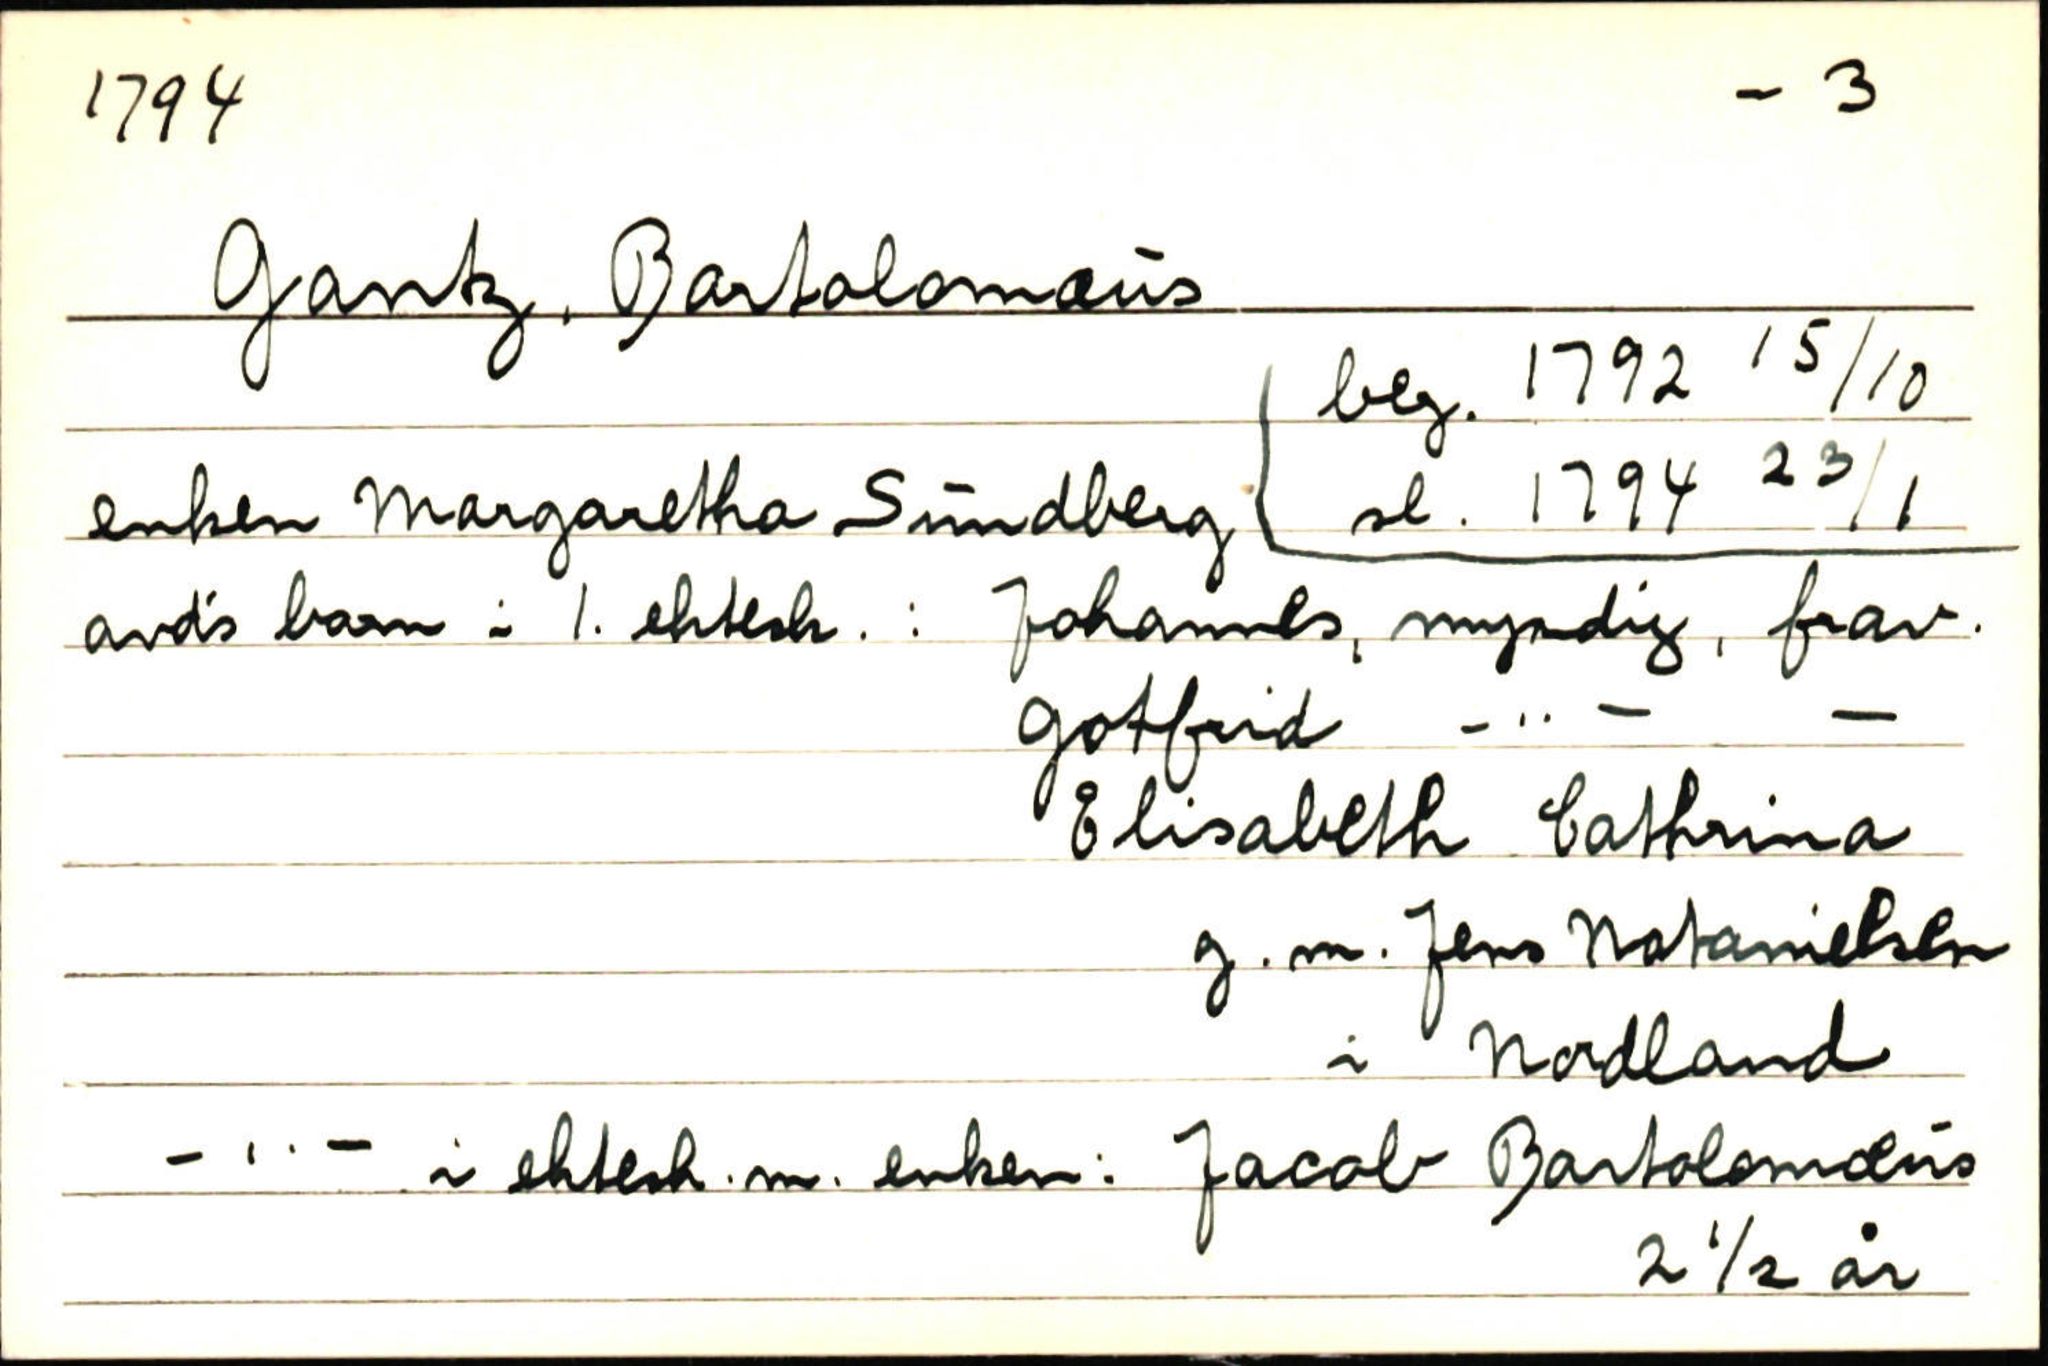 1794 - 3
Gantz, Bartolomæus
beg. 1792 15/10
enken Margaretha Sundberg sl. 1794 23/1
avd's barn i 1. ektesk. : Johannes, myndig, frav.
Gotfrid -"- -
Elisabeth Cathrina
g. m. Jens Natanielsen
i Nordland
-"- i ektesk. m. enken: Jacob Bartolomæus
2 1/2 år